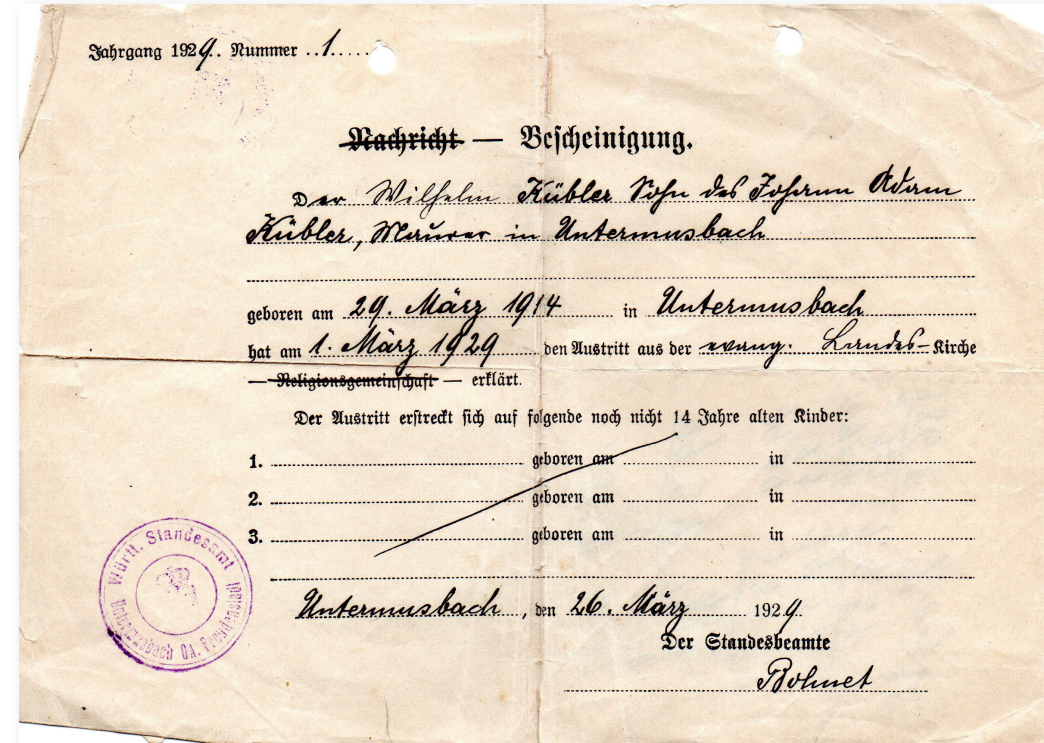 Jahrgang 1929. Nummer ..1.....
Nachricht — Bescheinigung.
Der Wilhelm Kübler Sohn des Johann Adam
Kübler, Maurer in Untermusbach
geboren am 29. März 1914 in Untermusbach
hat am 1. März 1929 den Austritt aus der evang. Landes-Kirche
— Religionsgemeinschaft — erklärt.
Der Austritt erstreckt sich auf folgende noch nicht 14 Jahre alten Kinder:
1. geboren am in
2. geboren am in
3. geboren am in
Württ. Standesamt
Untermusbach OA. Freudenstadt
Untermusbach, den 26. März 1929.
Der Standesbeamte
Bohnet